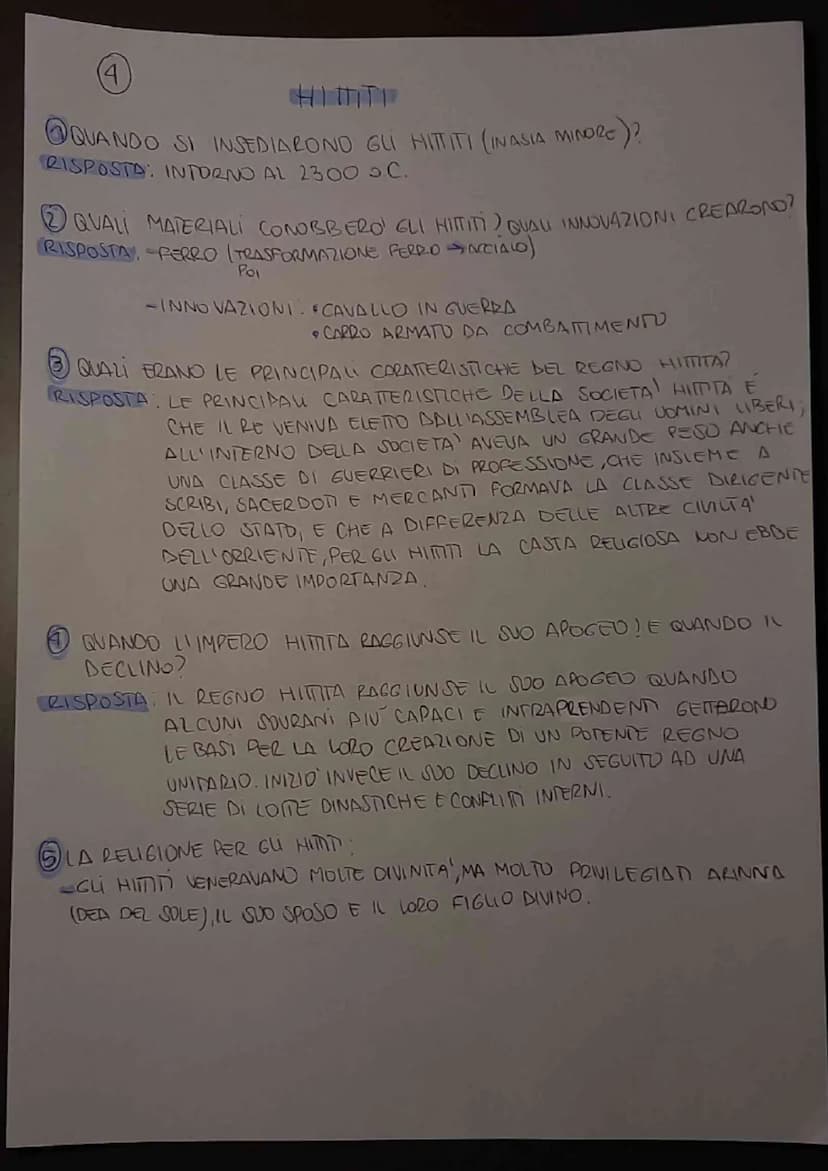 4
HITTITI
1 QUANDO SI INSEDIARONO GLI HITTITI (IN ASIA MINORE)?
RISPOSTA: INTORNO AL 2300 a.C.
2 QUALI MATERIALI CONOBBERO' GLI HITITI? QUALI INNOVAZIONI CREARONO?
RISPOSTA: -FERRO (TRASFORMAZIONE FERRO → ACCIAIO)
POI
-INNOVAZIONI: •CAVALLO IN GUERRA
•CARRO ARMATO DA COMBATTIMENTO
3 QUALI ERANO LE PRINCIPALI CARATTERISTICHE DEL REGNO HITTITA?
RISPOSTA: LE PRINCIPALI CARATTERISTICHE DELLA SOCIETA' HITTITA È
CHE IL RE VENIVA ELETTO DALL'ASSEMBLEA DEGLI UOMINI LIBERI,
ALL'INTERNO DELLA SOCIETA' AVEVA UN GRANDE PESO ANCHE
UNA CLASSE DI GUERRIERI DI PROFESSIONE, CHE INSIEME A
SCRIBI, SACERDOTI E MERCANTI FORMAVA LA CLASSE DIRIGENTE
DELLO STATO, E CHE A DIFFERENZA DELLE ALTRE CIVILTA'
DELL'ORRIENTE, PER GLI HITTITI LA CASTA RELIGIOSA NON EBBE
UNA GRANDE IMPORTANZA.
4 QUANDO L'IMPERO HITTITA RAGGIUNSE IL SUO APOGEO? E QUANDO IL
DECLINO?
RISPOSTA: IL REGNO HITTITA RAGGIUNSE IL SUO APOGEO QUANDO
ALCUNI SOVRANI PIU' CAPACI E INTRAPRENDENTI GETTARONO
LE BASI PER LA LORO CREAZIONE DI UN POTENTE REGNO
UNITARIO. INIZIO' INVECE IL SUO DECLINO IN SEGUITO AD UNA
SERIE DI LOTTE DINASTICHE E CONFLITTI INTERNI.
5 LA RELIGIONE PER GLI HITTITI:
-GLI HITTITI VENERAVANO MOLTE DIVINITA', MA MOLTO PRIVILEGIATI ARINNA
(DEA DEL SOLE), IL SUO SPOSO E IL LORO FIGLIO DIVINO.